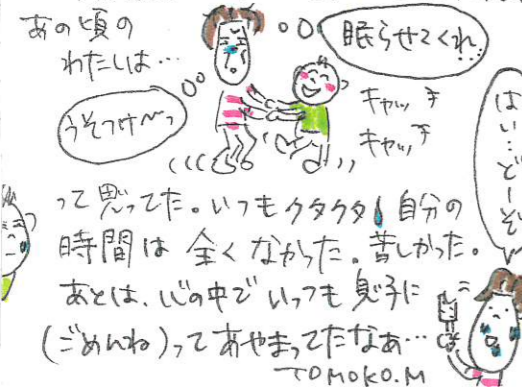 あの頃の
わたしは…
眠らせてくれ…
うそつけ〜っ
キャッ
キャッ
はい…どーぞ
って思ってた。いつもクタクタ 自分の
時間は 全くなかった。苦しかった。
あとは、心の中で いっつも 息子に
(ごめんね)って あやまってたなあ…
TOMOKO.M